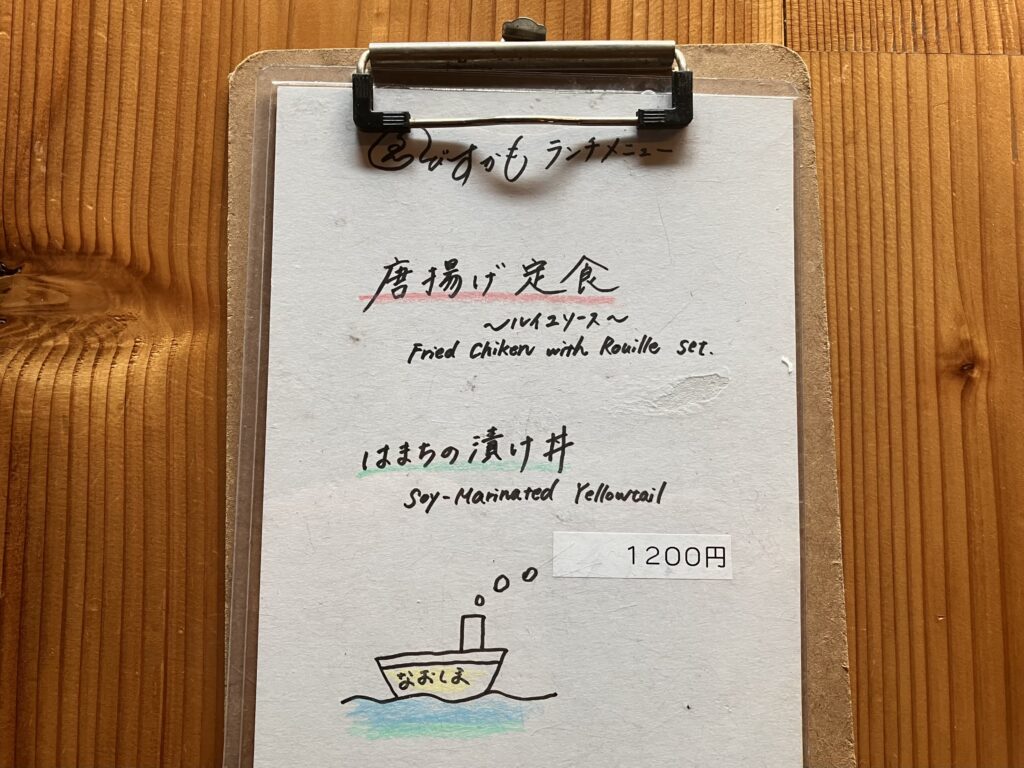 ゑびすかも ランチメニュー
唐揚げ定食
〜ルイユソース〜
Fried Chiken with Rouille set.
はまちの漬け丼
Soy-Marinated Yellowtail
1200円
なおしま